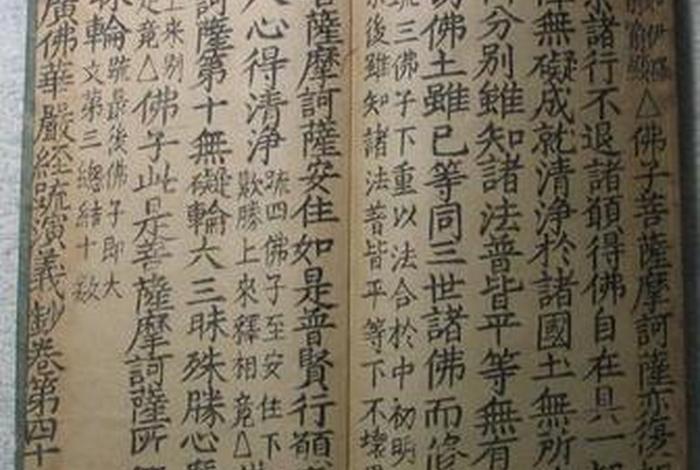 伊羅
喻顯
△佛子菩薩摩訶薩亦復
諸行不退諸願得佛自在具一
無礙成就清淨於諸國土無所
分別雖知諸法普皆平等無有
佛土雖已等同三世諸佛而修
疏三佛子下重以法合於中初明
後雖知諸法普皆平等下不壞
菩薩摩訶薩安住如是普賢行願
疏四佛子至安住下
歎勝上來釋相竟△
心得清淨
訶薩第十無礙輪六三昧殊勝心
上來別
竟△佛子此是菩薩摩訶薩所
輪疏最後佛子即大
文第三總結十數
廣佛華嚴經疏演義鈔卷第四十